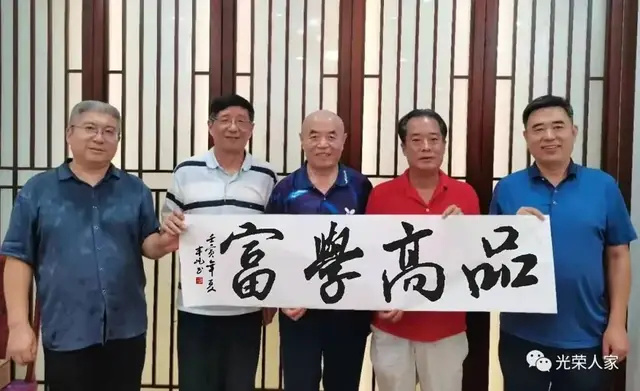 品高學富
壬寅年夏
光荣人家